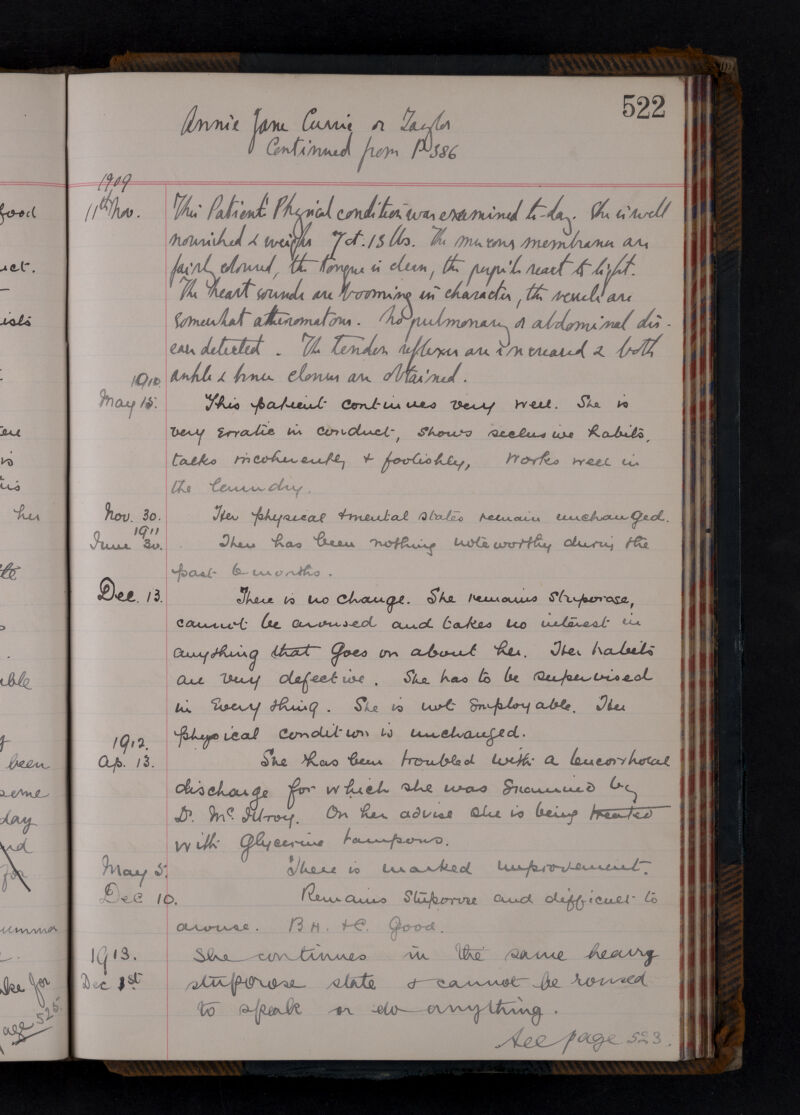 522
Annie Jane Currie or Taylor
Continued from P 386
1909
11th Nov. This Patient's Physical condition was examined to-day. She is well
nourished & weighs 7st. 13 lbs. The mucous membranes are
fairly coloured, the tongue is clean, the pupils react to light.
The heart sounds are booming in character, the vessels are
somewhat atheromatous. No pulmonary or abdominal dis-
ease detected. The tendon reflexes are increased & both
ankle & knee clonus are obtained.
1910.
May 15. This patient continues very well. She is
very erratic in conduct, shows seclusive habits,
talks incoherently & foolishly, works well in
the laundry.
Nov. 30. Her physical & mental states remain unchanged.
1911
June 30. There has been nothing noteworthy during the
past 6 months.
Dec. 13. There is no change. She remains stuporose,
cannot be aroused and takes no interest in
anything that goes on about her. Her habits
are very defective. She has to be supervised
in everything. She is not employable. Her
physical condition is unchanged.
1912.
Ap. 13. She has been troubled with a leucorrhoeal
discharge for which she was examined by
Dr. McIlroy. On her advise she is being treated
with glycerine tampons.
May 5. There is marked improvement.
Dec 10. Remains stuporose and difficult to
arouse. B.H. & C. Good.
1913. She continues in the same heavy
Dec 1st stuporose state & cannot be roused
to speak or do anything.
See page 523.
food
her
able
been
some
day
for
age 525.